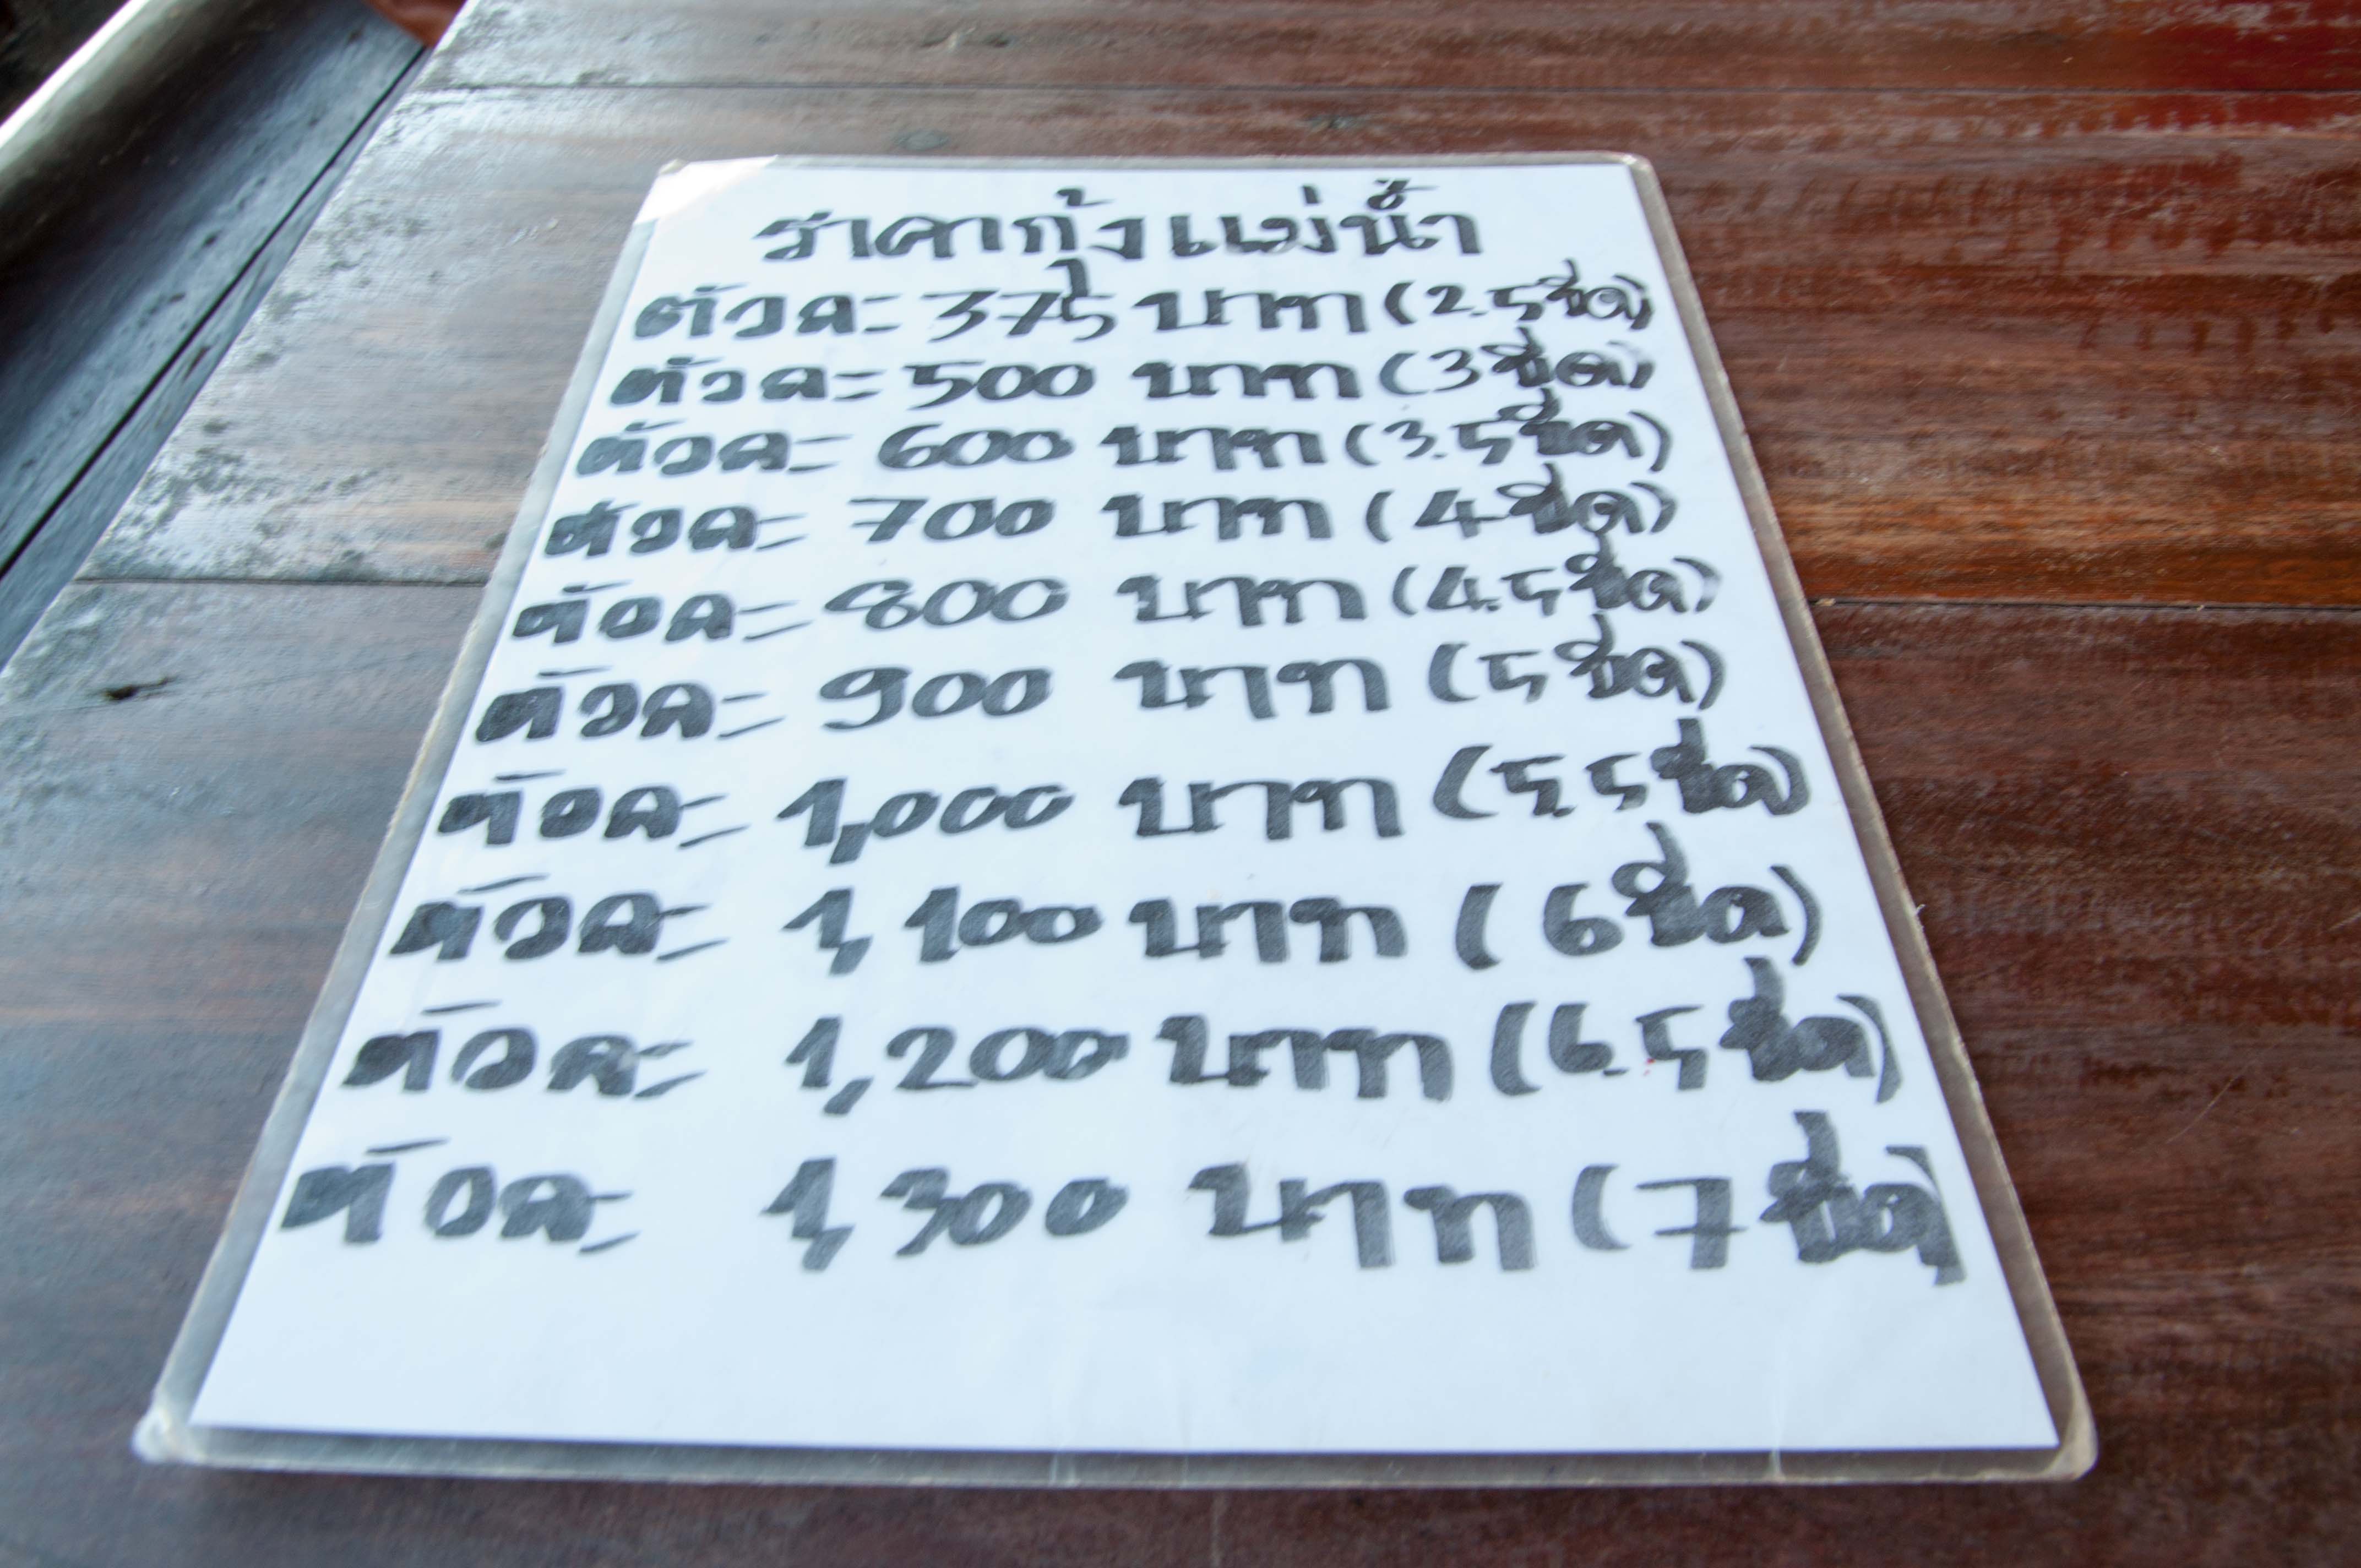 ราคากุ้งแม่น้ำ
ตัวละ 375 บาท (2.5ขีด)
ตัวละ 500 บาท (3ขีด)
ตัวละ 600 บาท (3.5ขีด)
ตัวละ 700 บาท (4ขีด)
ตัวละ 800 บาท (4.5ขีด)
ตัวละ 900 บาท (5ขีด)
ตัวละ 1,000 บาท (5.5ขีด)
ตัวละ 1,100 บาท (6ขีด)
ตัวละ 1,200 บาท (6.5ขีด)
ตัวละ 1,300 บาท (7ขีด)